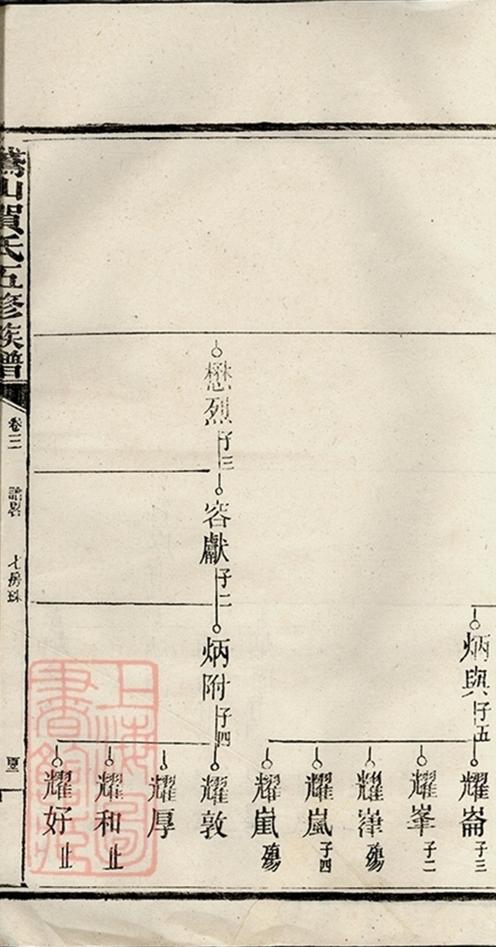 炳與 子五
耀崙 子三
耀峯 子二
耀嵂 殤
耀嵐 子四
耀嵐 殤
懋烈 子三
容獻 子二
炳附 子四
耀敦
耀厚
耀和 止
耀好 止
山賀氏五修族譜
卷三
七房珠